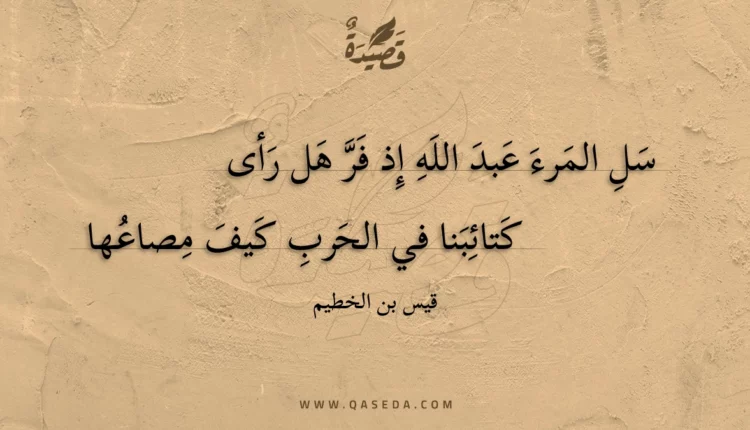 قَصِيْدَةٌ
سَلِ المَرءَ عَبدَ اللَهِ إِذ فَرَّ هَل رَأى
كَتائِبَنا في الحَربِ كَيفَ مِصاعُها
قيس بن الخطيم
WWW.QASEDA.COM